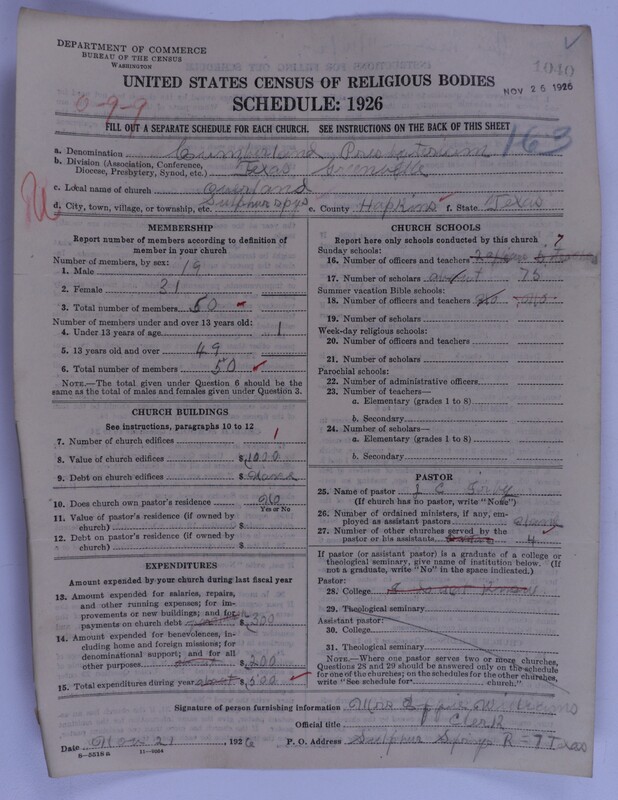 DEPARTMENT OF COMMERCE
BUREAU OF THE CENSUS
WASHINGTON
1040
NOV 26 1926
UNITED STATES CENSUS OF RELIGIOUS BODIES
SCHEDULE: 1926
6-9-9
FILL OUT A SEPARATE SCHEDULE FOR EACH CHURCH. SEE INSTRUCTIONS ON THE BACK OF THIS SHEET
163
a. Denomination Cumberland Presbyterian
b. Division (Association, Conference, Diocese, Presbytery, Synod, etc.) Texas Greenville
c. Local name of church
d. City, town, village, or township, etc. Sulphur Spgs e. County Hopkins f. State Texas
MEMBERSHIP
Report number of members according to definition of
member in your church
Number of members, by sex:
1. Male 19
2. Female 31
3. Total number of members 50
Number of members under and over 13 years old:
4. Under 13 years of age 1
5. 13 years old and over 49
6. Total number of members 50
NOTE.—The total given under Question 6 should be
same as the total of males and females given under Question 3.
CHURCH BUILDINGS
See instructions, paragraphs 10 to 12
7. Number of church edifices 1
8. Value of church edifices $1000
9. Debt on church edifices $
10. Does church own pastor's residence No
Yes or No
11. Value of pastor's residence (if owned by
church) $
12. Debt on pastor's residence (if owned by
church) $
EXPENDITURES
Amount expended by your church during last fiscal year
13. Amount expended for salaries, repairs,
and other running expenses; for im-
provements or new buildings; and for
payments on church debt $300
14. Amount expended for benevolences, in-
cluding home and foreign missions; for
denominational support; and for all
other purposes about $200
15. Total expenditures during year about $500
CHURCH SCHOOLS
Report here only schools conducted by this church
Sunday schools: 7
16. Number of officers and teachers
17. Number of scholars about 75
Summer vacation Bible schools:
18. Number of officers and teachers no
19. Number of scholars
Week-day religious schools:
20. Number of officers and teachers
21. Number of scholars
Parochial schools:
22. Number of administrative officers
23. Number of teachers—
a. Elementary (grades 1 to 8)
b. Secondary
24. Number of scholars—
a. Elementary (grades 1 to 8)
b. Secondary
PASTOR
25. Name of pastor
(If church has no pastor, write "None")
26. Number of ordained ministers, if any, em-
ployed as assistant pastors
27. Number of other churches served by the
pastor or his assistants 4
If pastor (or assistant pastor) is a graduate of a college or
theological seminary, give name of institution below. (If
not a graduate, write "No" in the space indicated.)
Pastor:
28. College I do not know
29. Theological seminary
Assistant pastor:
30. College
31. Theological seminary
NOTE.—Where one pastor serves two or more churches,
Questions 28 and 29 should be answered only on the schedule
for one of the churches; on the schedules for the other churches,
write "See schedule for church."
Signature of person furnishing information Mrs Effie
Official title Clerk
Date Nov 21, 1926 P. O. Address Sulphur Springs R-7 Texas
8-5518a 11-9564